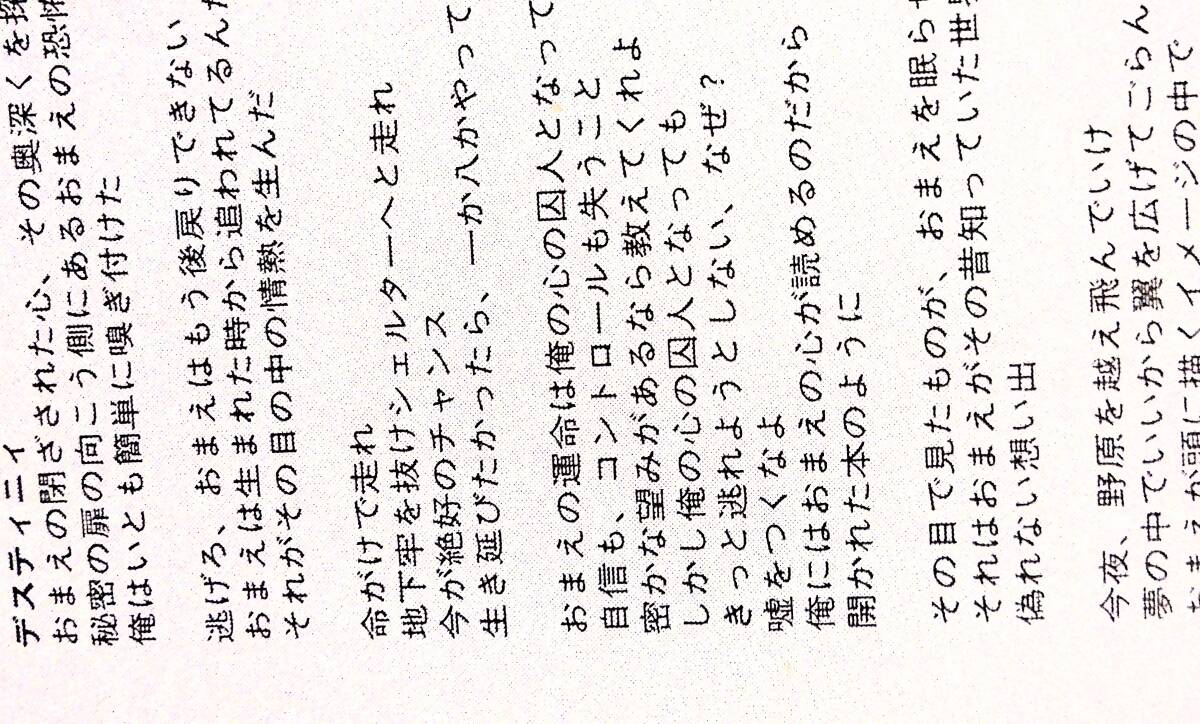 デスティニィ
おまえの閉ざされた心、その奥深くを探
秘密の扉の向こう側にあるおまえの恐怖
俺はいとも簡単に嗅ぎ付けた
逃げろ、おまえはもう後戻りできない
おまえは生まれた時から追われてるんだ
それがその目の中の情熱を生んだ
命がけで走れ
地下牢を抜けシェルターへと走れ
今が絶好のチャンス
生き延びたかったら、一か八かやって
おまえの運命は俺の心の囚人となって
自信も、コントロールも失うこと
密かな望みがあるなら教えてくれよ
しかし俺の心の囚人となっても
きっと逃れようとしない、なぜ？
嘘をつくなよ
俺にはおまえの心が読めるのだから
開かれた本のように
その目で見たものが、おまえを眠らせ
それはおまえがその昔知っていた世界
偽れない想い出
今夜、野原を越え飛んでいけ
夢の中でいいから翼を広げてごらん
おまえが頭に描くイメージの中で